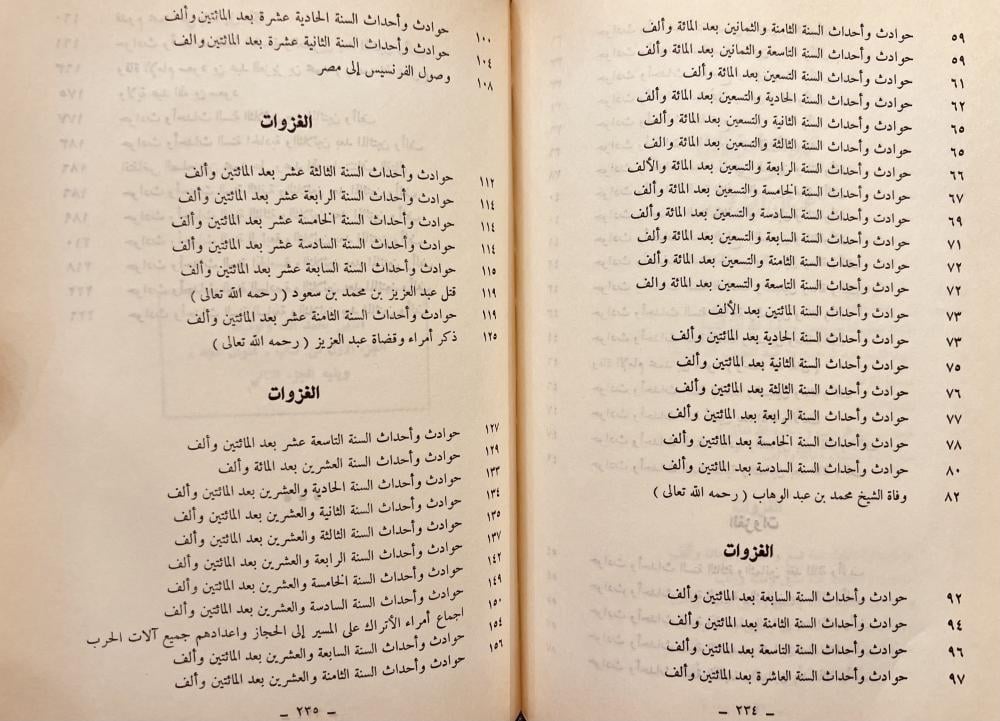 حوادث وأحداث السنة الثامنة والثمانين بعد المائة وألف ٥٩
حوادث وأحداث السنة التاسعة والثمانين بعد المائة وألف ٥٩
حوادث وأحداث السنة التسعين بعد المائة وألف ٦١
حوادث وأحداث السنة الحادية والتسعين بعد المائة وألف ٦٢
حوادث وأحداث السنة الثانية والتسعين بعد المائة وألف ٦٥
حوادث وأحداث السنة الثالثة والتسعين بعد المائة والف ٦٥
حوادث وأحداث السنة الرابعة والتسعين بعد المائة والألف ٦٦
حوادث وأحداث السنة الخامسة والتسعين بعد المائة وألف ٦٧
حوادث وأحداث السنة السادسة والتسعين بعد المائة وألف ٦٩
حوادث وأحداث السنة السابعة والتسعين بعد المائة وألف ٧١
حوادث وأحداث السنة الثامنة والتسعين بعد المائة وألف ٧٢
حوادث وأحداث السنة التاسعة والتسعين بعد المائة والف ٧٢
حوادث وأحداث السنة المائتين بعد الألف ٧٣
حوادث وأحداث السنة الحادية بعد المائتين وألف ٧٣
حوادث وأحداث السنة الثانية بعد المائتين وألف ٧٥
حوادث وأحداث السنة الثالثة بعد المائتين وألف ٧٦
حوادث وأحداث السنة الرابعة بعد المائتين وألف ٧٧
حوادث وأحداث السنة الخامسة بعد المائتين وألف ٧٨
حوادث وأحداث السنة السادسة بعد المائتين وألف ٨٠
وفاة الشيخ محمد بن عبد الوهاب ( رحمه الله تعالى ) ٨٢
الغزوات
حوادث وأحداث السنة السابعة بعد المائتين وألف ٩٢
حوادث وأحداث السنة الثامنة بعد المائتين وألف ٩٤
حوادث وأحداث السنة التاسعة بعد المائتين وألف ٩٦
حوادث وأحداث السنة العاشرة بعد المائتين وألف ٩٧
ـ ٢٣٤ ـ
حوادث وأحداث السنة الحادية عشرة بعد المائتين وألف ١٠٠
حوادث وأحداث السنة الثانية عشرة بعد المائتين والف ١٠٤
وصول الفرنسيس إلى مصر ١٠٨
الغزوات
حوادث وأحداث السنة الثالثة عشر بعد المائتين وألف ١١٢
حوادث وأحداث السنة الرابعة عشر بعد المائتين وألف ١١٤
حوادث وأحداث السنة الخامسة عشر بعد المائتين وألف ١١٤
حوادث وأحداث السنة السادسة عشر بعد المائتين وألف ١١٤
حوادث وأحداث السنة السابعة عشر بعد المائتين وألف ١١٥
قتل عبد العزيز بن محمد بن سعود ( رحمه الله تعالى ) ١١٩
حوادث وأحداث السنة الثامنة عشر بعد المائتين وألف ١١٩
ذكر أمراء وقضاة عبد العزيز ( رحمه الله تعالى ) ١٢٥
الغزوات
حوادث وأحداث السنة التاسعة عشر بعد المائتين وألف ١٢٧
حوادث وأحداث السنة العشرين بعد المائة وألف ١٢٩
حوادث وأحداث السنة الحادية والعشرين بعد المائتين وألف ١٣٣
حوادث وأحداث السنة الثانية والعشرين بعد المائتين وألف ١٣٤
حوادث وأحداث السنة الثالثة والعشرين بعد المائتين وألف ١٣٥
حوادث وأحداث السنة الرابعة والعشرين بعد المائتين وألف ١٣٧
حوادث وأحداث السنة الخامسة والعشرين بعد المائتين وألف ١٤٢
حوادث وأحداث السنة السادسة والعشرين بعد المائتين وألف ١٤٩
اجماع أمراء الأتراك على المسير إلى الحجاز واعدادهم جميع آلات الحرب ١٥٠
حوادث وأحداث السنة السابعة والعشرين بعد المائتين وألف ١٥٤
حوادث وأحداث السنة الثامنة والعشرين بعد المائتين وألف ١٥٦
ـ ٢٣٥ ـ